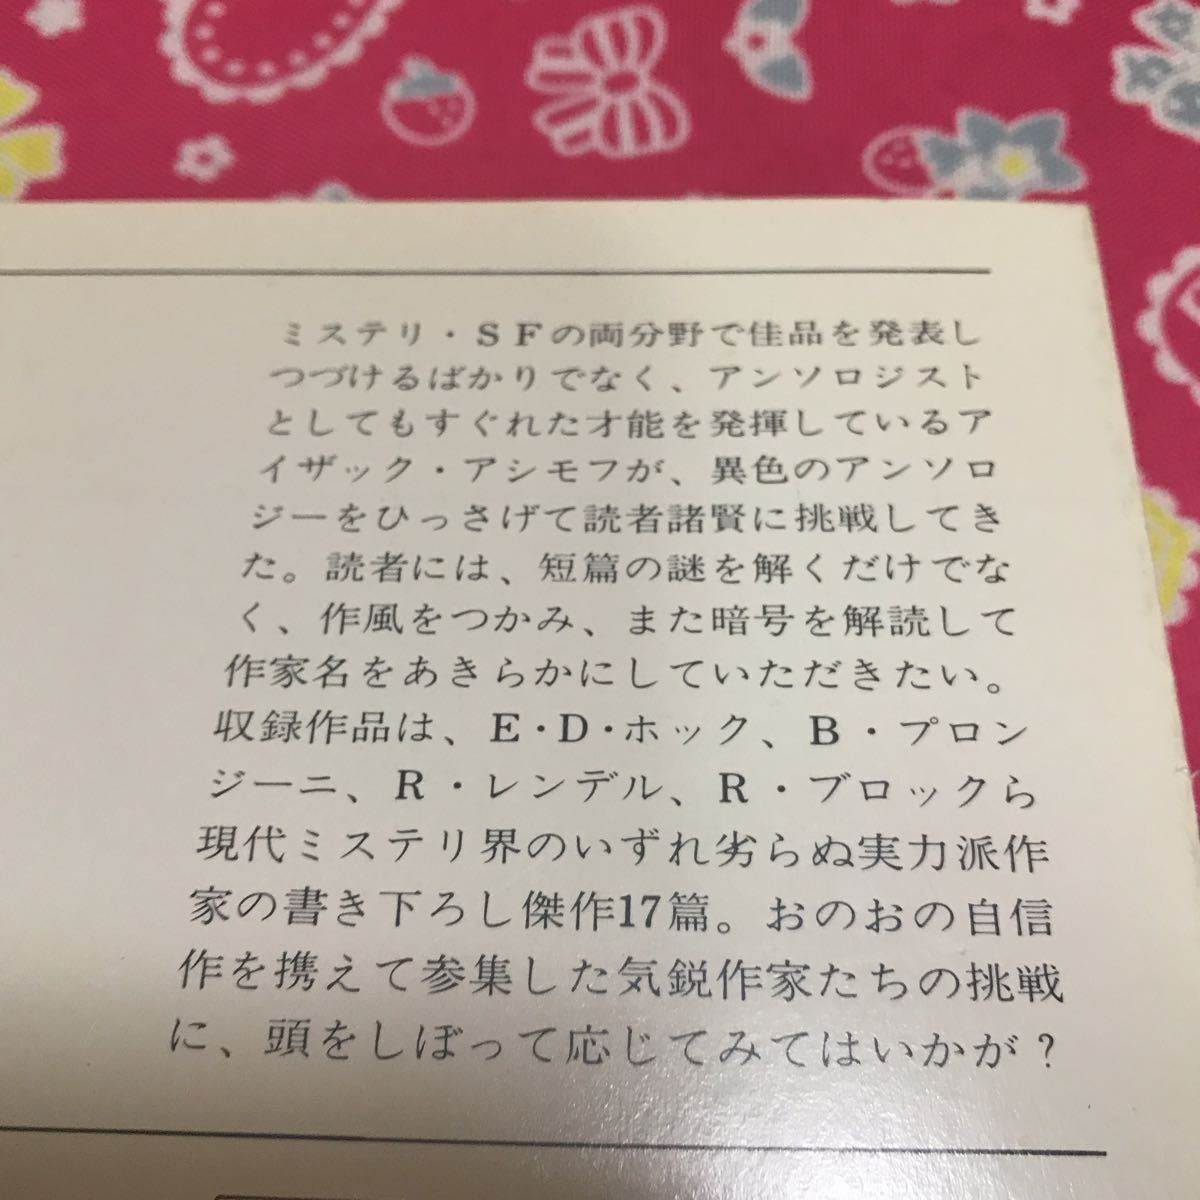 ミステリ・ＳＦの両分野で佳品を発表し
つづけるばかりでなく、アンソロジスト
としてもすぐれた才能を発揮しているア
イザック・アシモフが、異色のアンソロ
ジーをひっさげて読者諸賢に挑戦してき
た。読者には、短篇の謎を解くだけでな
く、作風をつかみ、また暗号を解読して
作家名をあきらかにしていただきたい。
収録作品は、Ｅ・Ｄ・ホック、Ｂ・プロン
ジーニ、Ｒ・レンデル、Ｒ・ブロックら
現代ミステリ界のいずれ劣らぬ実力派作
家の書き下ろし傑作17篇。おのおの自信
作を携えて参集した気鋭作家たちの挑戦
に、頭をしぼって応じてみてはいかが？